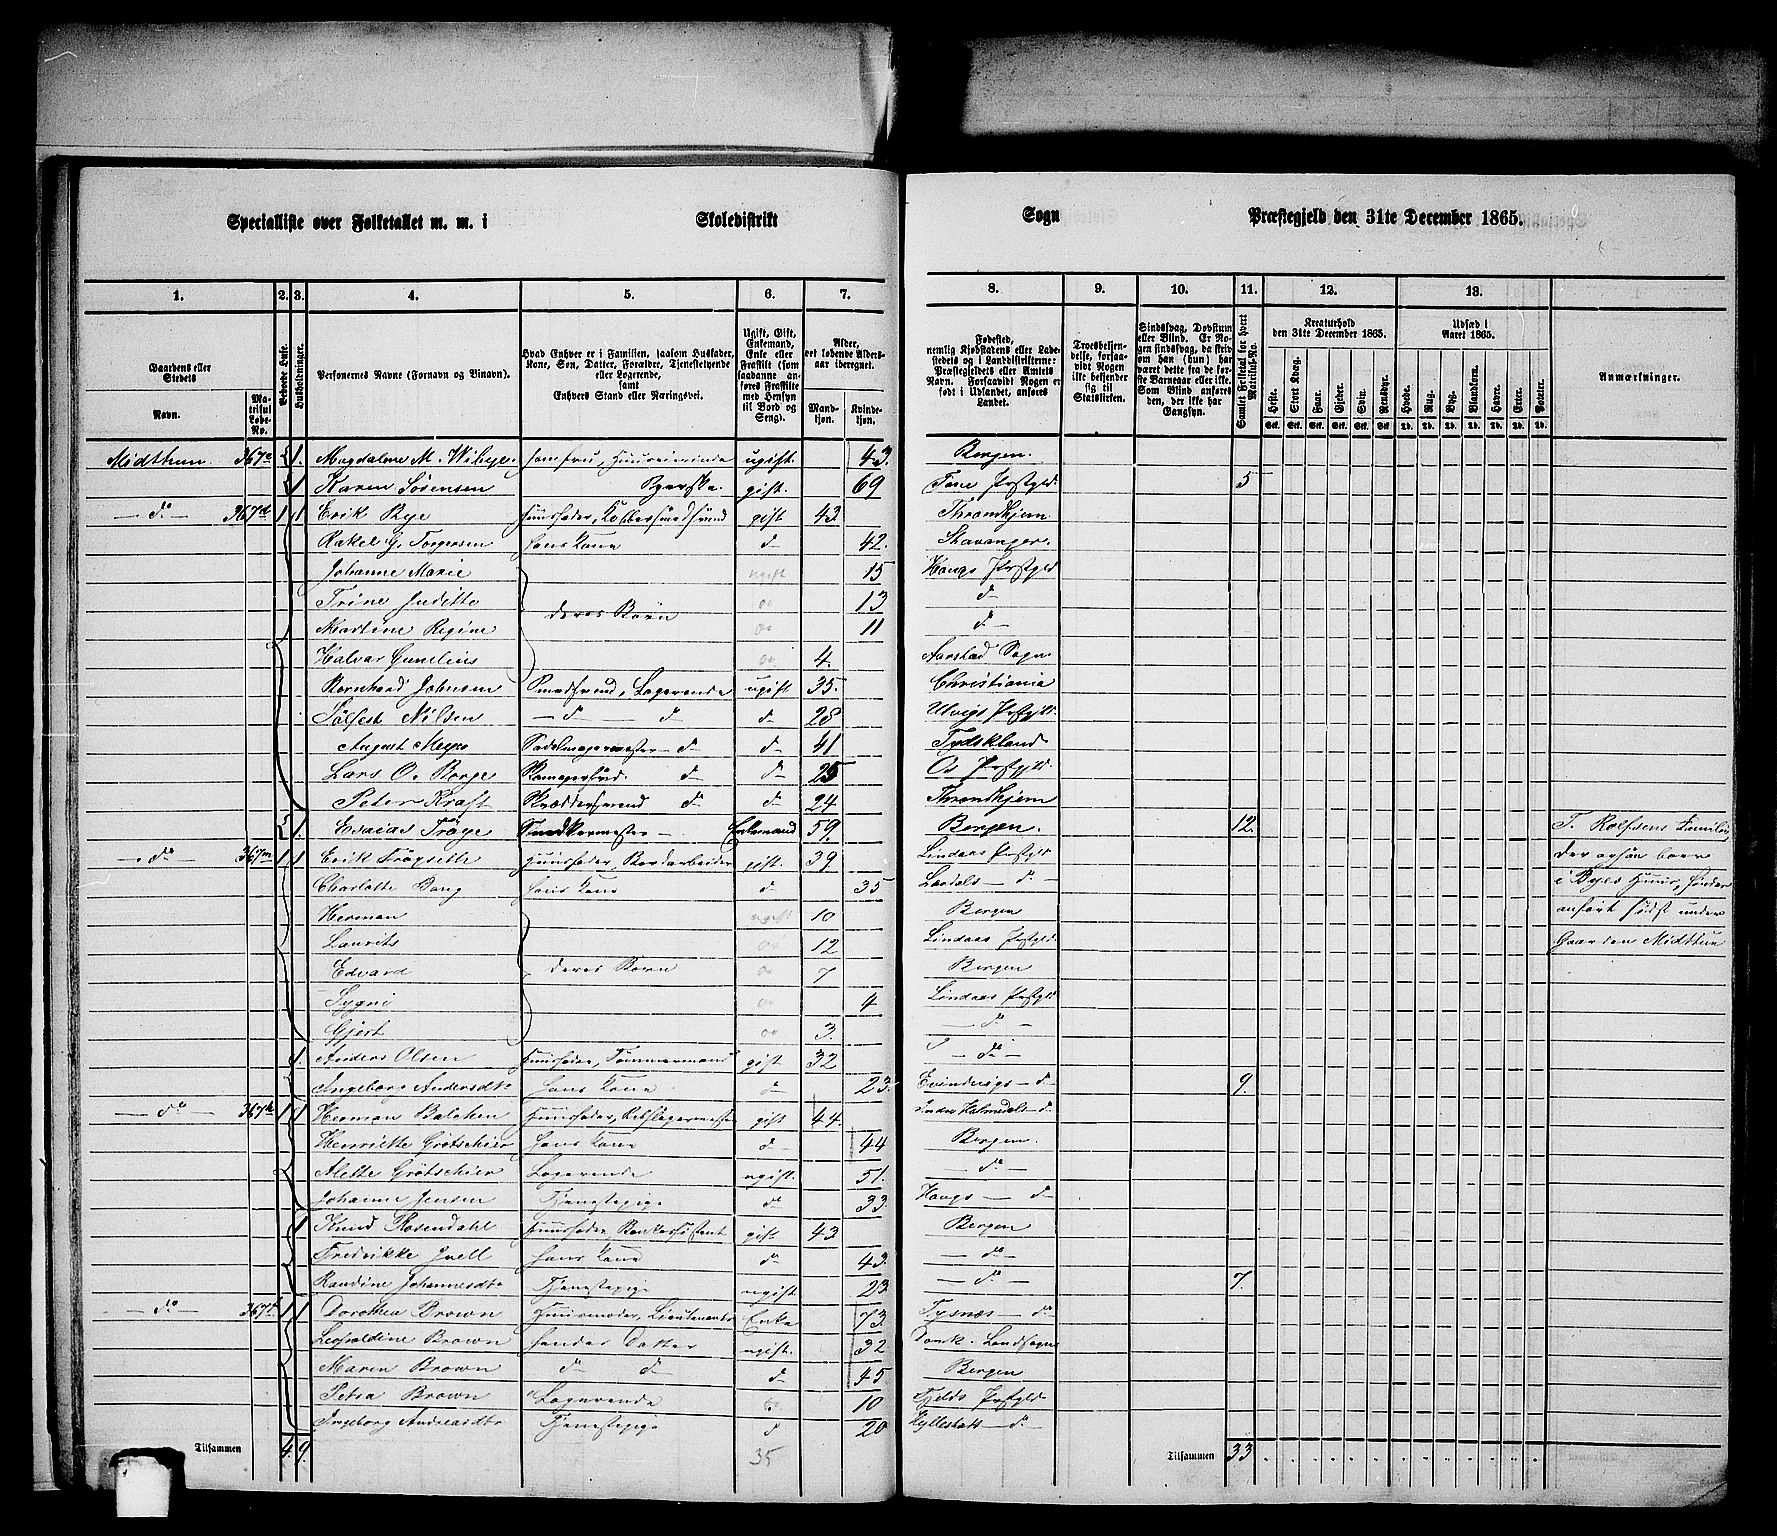 Specialliste over Folketallet m. m. i Skoledistrikt Sogn Præstegjeld den 31te December 1865.
1. 2. 3. 4. 5. 6. 7. 8. 9. 10. 11. 12. 13.
Gaardens eller Stedets
Navn.
Matrikul Løbe-No.
Beboede Huse.
Husholdninger.
Personernes Navne (Fornavn og Tilnavn).
Hvad Enhver er i Familien, saasom Husfader, Kone, Søn, Datter, Forældre, Tjenestetyende eller Logerende, samt Enhvers Stand eller Næringsvei.
Ugift, Gift, Enkemand, Enke eller Fraskilt (som saadanne anføres Fraskilte med Hensyn til Bord og Seng).
Alder, det løbende Alders-aar iberegnet.
Mandkjøn. Kvindekjøn.
Fødested, nemlig Kjøbstadens eller Ladestedets og i Landdistrikterne: Præstegjeldets eller Amtets Navn. Forsaavidt Nogen er født i Udlandet, anføres Landet.
Troesbekjendelse, forsaavidt Nogen ikke bekjender sig til Statskirken.
Sindssvag, Døvstum eller Blind. Er Nogen sindssvag, da skrives om han (hun) har været dette fra de første Barneaar eller ikke. Som Blind anføres den, der ikke har Gangsyn.
Samlet Folketal for hvert Matrikul-No.
Kreaturhold den 31te December 1865.
Heste. Stort Kvæg. Faar. Gjeder. Svin. Rensdyr.
Udsæd i Aaret 1865.
Hvede. Rug. Byg. Blandkorn. Havre. Erter. Poteter.
Anmærkninger.
Midthun 367 1. Magdalene M. Wibeye ugift. 43. Bergen.
1 Karen Sørensen gift. 69 Tane Prstgld. 5
— do — 367 1 1 Erik Bye gift 43. Throndhjem
Rakel G. Torgersen hans Kone do 42. Stavanger.
Johanne Marie ugift 15 Hougs Prstgld
Trine Juditte deres Børn 13 do
Martine Regine 11 do —
Halvar Gunelius 4. Aarstad Sogn
Bernhard Johnsen Smedsvend, Logerende ugift 35. Christiania
Tolfest Nilsen — do do do 28 Ulvigs Prstgld.
August Meyer Sadelmagermester do do 41 Tydskland
Lars O. Borge do do 25 Os Prstgld.
Peter Kraft Skræddersvend do do 24 Throndhjem
1. Esaias Trøye Enkemand 59. Bergen. 12. T. Rolfsens Familie
— do — 367 1 1 Erik Frøysette Husfader, Bordarbeider gift. 39 Lindaas Prstgld der ogsaa boer
Charlotte Bang hans Kone do 35 Laadals — do — i Byes Huus,
Herman ugift 10 Bergen anført sidst under
Laurits 12 Lindaas Prstgld. Gaarden Midthun
Edvard deres Børn 7 Bergen
Sygni 4 Lindaas Prstgld.
Gjert 3. — do —
1. Anders Olsen Husfader, Tømmermand gift 32 — do —
Ingeborg Andersdtr hans Kone do 23. Evindvigs — do 9.
— do — 367 1 1 Herman Balchen Husfader, Rebslagermester gift 44 Indre Holmedals do
Henriette Grøtschier hans Kone do 44 Bergen.
Alette Grøtschier Logerende ugift. 51. — do —
Johanne Jensen Tjenestepige do 33. Hougs — do
1 Knud Rosendahl Husfader, Bankassistent gift 43 Bergen
Fredrikke Juell hans Kone do 43. — do —
Randine Johannesdtr Tjenestepige ugift 23 — do — 7.
— do — 367 1 1 Dorothea Brown Huusmoder, Lieutenants Enke 73. Tysnæs — do
Leopoldine Brown hendes Datter ugift. 32 Dansk. Landsogn
Maren Brown do do do 45 Bergen
Petra Brown Logerende 10 Fjelds Prstgld
Ingeborg Andreasdtr Tjenestepige do 20 Hyllestad — do —
Tilsammen 4. 9. 35 Tilsammen 33